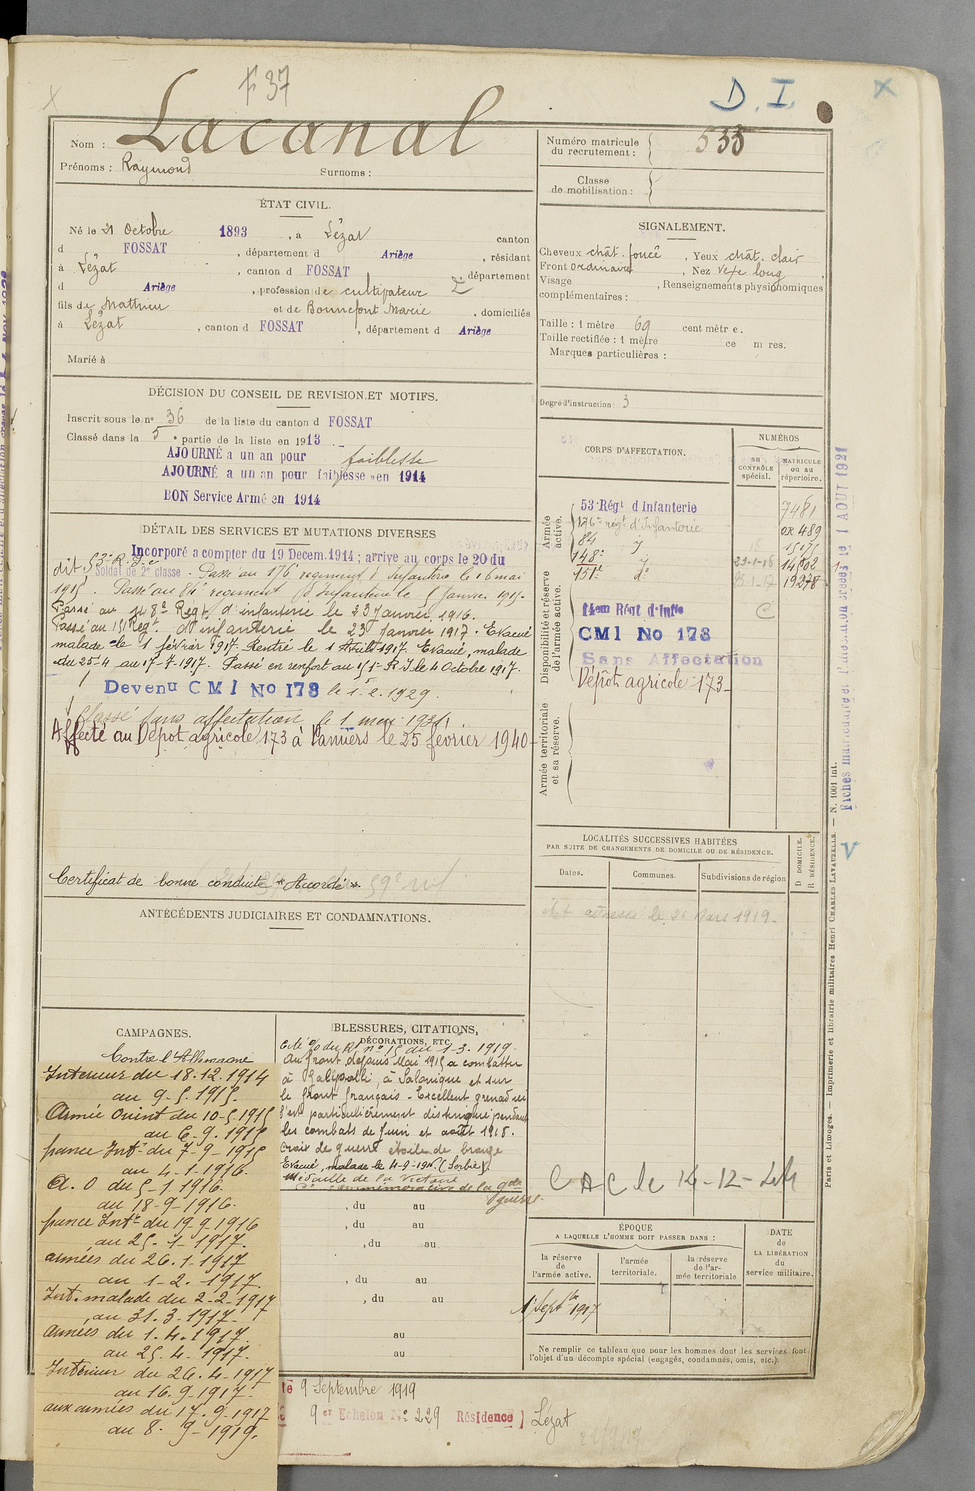 F 37
D. I.
Nom : Lacanal
Prénoms : Raymond Surnoms :
Numéro matricule
du recrutement :
Classe
de mobilisation :
ÉTAT CIVIL.
Né le 21 Octobre 1893, à Lézat canton
d FOSSAT, département d Ariège, résidant
à Lézat, canton d FOSSAT, département
d Ariège, profession de cultivateur
fils de Mathieu et de Bonnefont Marie, domiciliés
à Lézat, canton d FOSSAT, département d Ariège
Marié à
SIGNALEMENT.
Cheveux chât. foncé, Yeux chât. clair
Front ordinaire, Nez long,
Visage, Renseignements physionomiques
complémentaires :
Taille : 1 mètre 69 centimètre.
Taille rectifiée : 1 mètre ce m res.
Marques particulières :
Degré d'instruction : 3
DÉCISION DU CONSEIL DE REVISION ET MOTIFS.
Inscrit sous le n° 36 de la liste du canton d FOSSAT
Classé dans la 5e partie de la liste en 1913
AJOURNÉ a un an pour faiblesse
AJOURNÉ a un an pour faiblesse en 1914
BON Service Armé en 1914
DÉTAIL DES SERVICES ET MUTATIONS DIVERSES
Incorporé a compter du 19 Decem. 1914 ; arrive au corps le 20 du
dit, 53e R. I.
Soldat de 2e classe. Passé au 176 regiment d'Infanterie le 6 mai
1915. Passé au 84 regiment d'Infanterie le 5 Janvier 1915.
Passé au 148e Regt d'infanterie le 23 Janvier 1916.
Passé au 151 Regt. d'infanterie le 23 Janvier 1917. Evacué
malade le 1 février 1917. Rentré le 1 Avril 1917. Evacué, malade
du 25-4 au 17-7-1917. Passé en renfort au 151e R I le 4 Octobre 1917.
Devenu C M I No 178 le 1. 2. 1929.
Classé sans affectation le 1 mai 1931.
Affecté au Dépot agricole 173 à Pamiers le 25 février 1940
Certificat de bonne conduite "Accordé".
CORPS D'AFFECTATION.
NUMÉROS
au
CONTRÔLE
spécial.
MATRICULE
ou au
répertoire.
Armée
active.
53e Régt d Infanterie 7481
176e régt d'Infanterie
84
148e 23-1-16 14502
151e 19278
Disponibilité et réserve
de l'armée active.
14em Régt d'Inftie
CMI No 178
Sans Affectation
Dépôt agricole 173
Armée territoriale
et sa réserve.
Fiches matriculaires
1 AOUT 1921
LOCALITÉS SUCCESSIVES HABITÉES
PAR SUITE DE CHANGEMENTS DE DOMICILE OU DE RÉSIDENCE.
Dates. Communes. Subdivisions de région
D DOMICILE.
R RÉSIDENCE.
adresse le 26 Mars 1919.
ANTÉCÉDENTS JUDICIAIRES ET CONDAMNATIONS.
CAMPAGNES.
Contre l'Allemagne
Interieur du 18.12.1914
au 9-5-1915.
Armée Orient du 10-5-1915
au 6-9-1915
france Intr du 7-9-1915
au 4-1-1916.
A. O du 5-1-1916
au 18-9-1916.
france Intr du 19-9-1916
au 25-1-1917.
armées du 26.1.1917
au 1-2-1917
Int. malade du 2-2-1917
au 31.3-1917.
armées du 1.4.1917.
au 25.4-1917.
Intérieur du 26.4-1917
au 16.9-1917
aux armées du 17.9-1917
au 8-9-1919.
BLESSURES, CITATIONS,
DÉCORATIONS, ETC.
Cité du Rt n° 15 du 1-3-1919.
Au front depuis Mai 1915 a combattu
à Gallipolli, à Salonique et sur
le front français. Excellent grenadier
s'est particulièrement distingué pendant
les combats de Juin et août 1918.
Croix de guerre étoile de bronze
Evacué, malade le 4-9-1916 (Serbie)
Médaille de la Victoire
commémorative de la gde
guerre.
, du au
, du au
, du au
, du au
, du au
au
au
ÉPOQUE
A LAQUELLE L'HOMME DOIT PASSER DANS :
la réserve
de
l'armée active.
l'armée
territoriale.
la réserve
de l'ar-
mée territoriale
DATE
de
LA LIBÉRATION
du
service militaire.
1 Septbre 1917
Ne remplir ce tableau que pour les hommes dont les services font
l'objet d'un décompte spécial (engagés, condamnés, omis, etc.).
té 9 Septembre 1919
9er Echelon No 229 Résidence Lézat
Paris et Limoges. — Imprimerie et librairie militaires Henri CHARLES-LAVAUZELLE. — N. 1001 int.